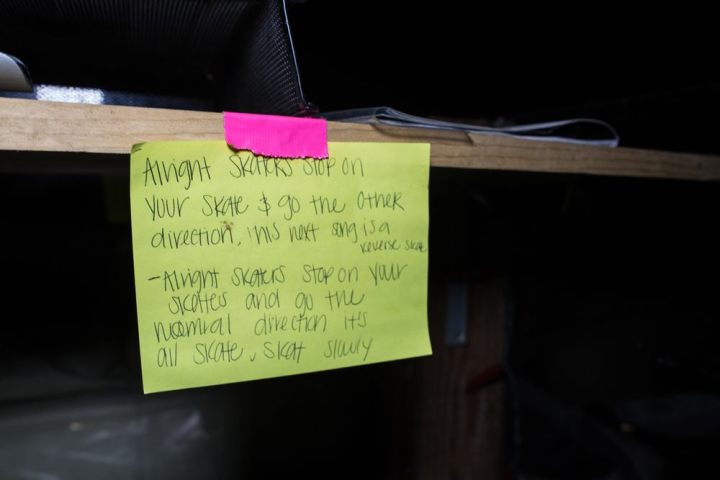 Alright Skaters Stop on
your skate & go the other
direction, this next song is a
reverse skate
- Alright skaters stop on your
skates and go the
noomral direction it's
all skate, skat slowly